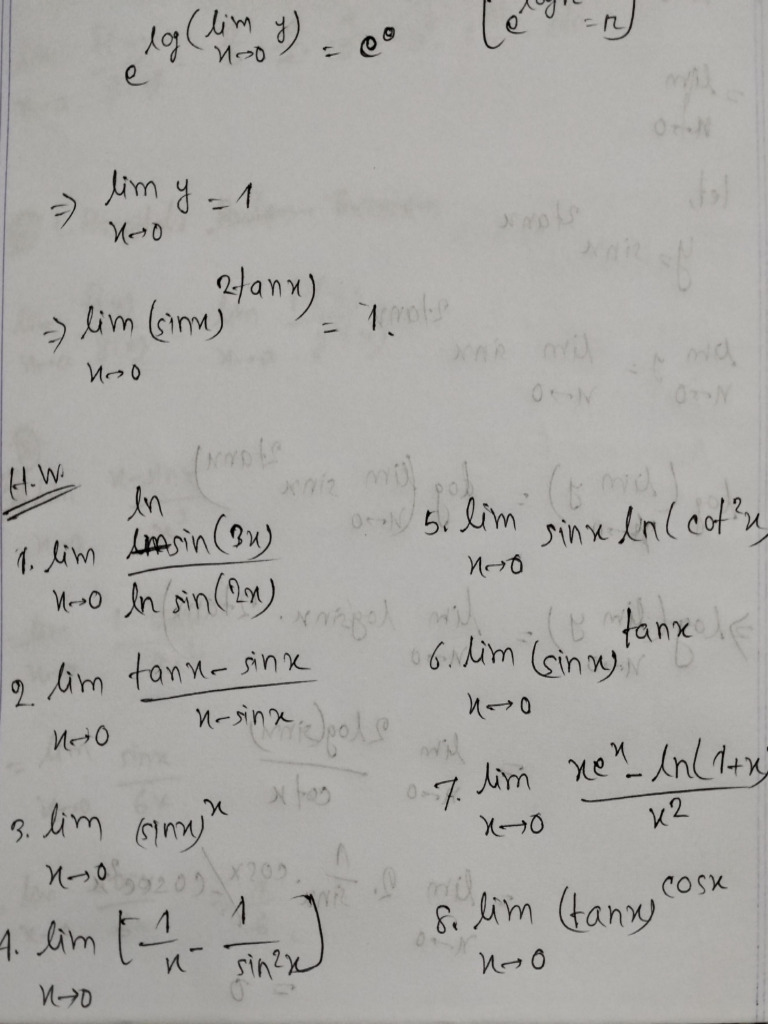 e^{log(lim_{x→0} y)} = e^0 [e^{log n} = n]
⇒ lim_{x→0} y = 1
⇒ lim_{x→0} (sinx)^{2tanx)} = 1.
H.W.
1. lim_{x→0} ln sin(3x) / ln sin(2x)
2 lim_{x→0} tanx - sinx / x - sinx
3. lim_{x→0} (sinx)^x
4. lim_{x→0} [1/x - 1/sin²x]
5. lim_{x→0} sinx ln(cot²x)
6. lim_{x→0} (sinx)^{tanx}
7. lim_{x→0} xe^x - ln(1+x) / x²
8. lim_{x→0} (tanx)^{cosx}